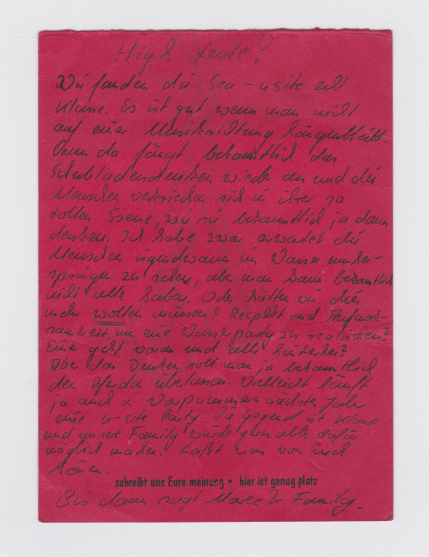 High Leute!
Wir fanden die Sea-u-site echt
klasse. Es ist gut wenn man nicht
auf einer Musikrichtung hängenbleibt.
Denn da fängt bekanntlich das
Schubladendenken wieder an und die
Menschen verkriechen sich in ihrer so
tollen Szene, wie sie bekanntlich ja dann
denken. Ich habe zwar erwartet die
Menschen irgendwann im Wasser
springen zu sehen, aber man kann bekanntlich
nicht alles haben. Oder hätten wir dies
mehr wollen müssen? Respekt und
um eine Wasserparty zu realisieren?
Einer geht voran und alle hinterher?
Aber das Denken soll man ja bekanntlich
den Pferden überlassen. Vielleicht läuft
ja auch in Vorpommern nächstes Jahr
eine u-site Party. Die Gegend ist klasse
und unsere Family würde gern alles dafür
möglich machen. Laßt was von Euch
hören.
schreibt uns Eure meinung • hier ist genug platz
Bis dann sagt Family.